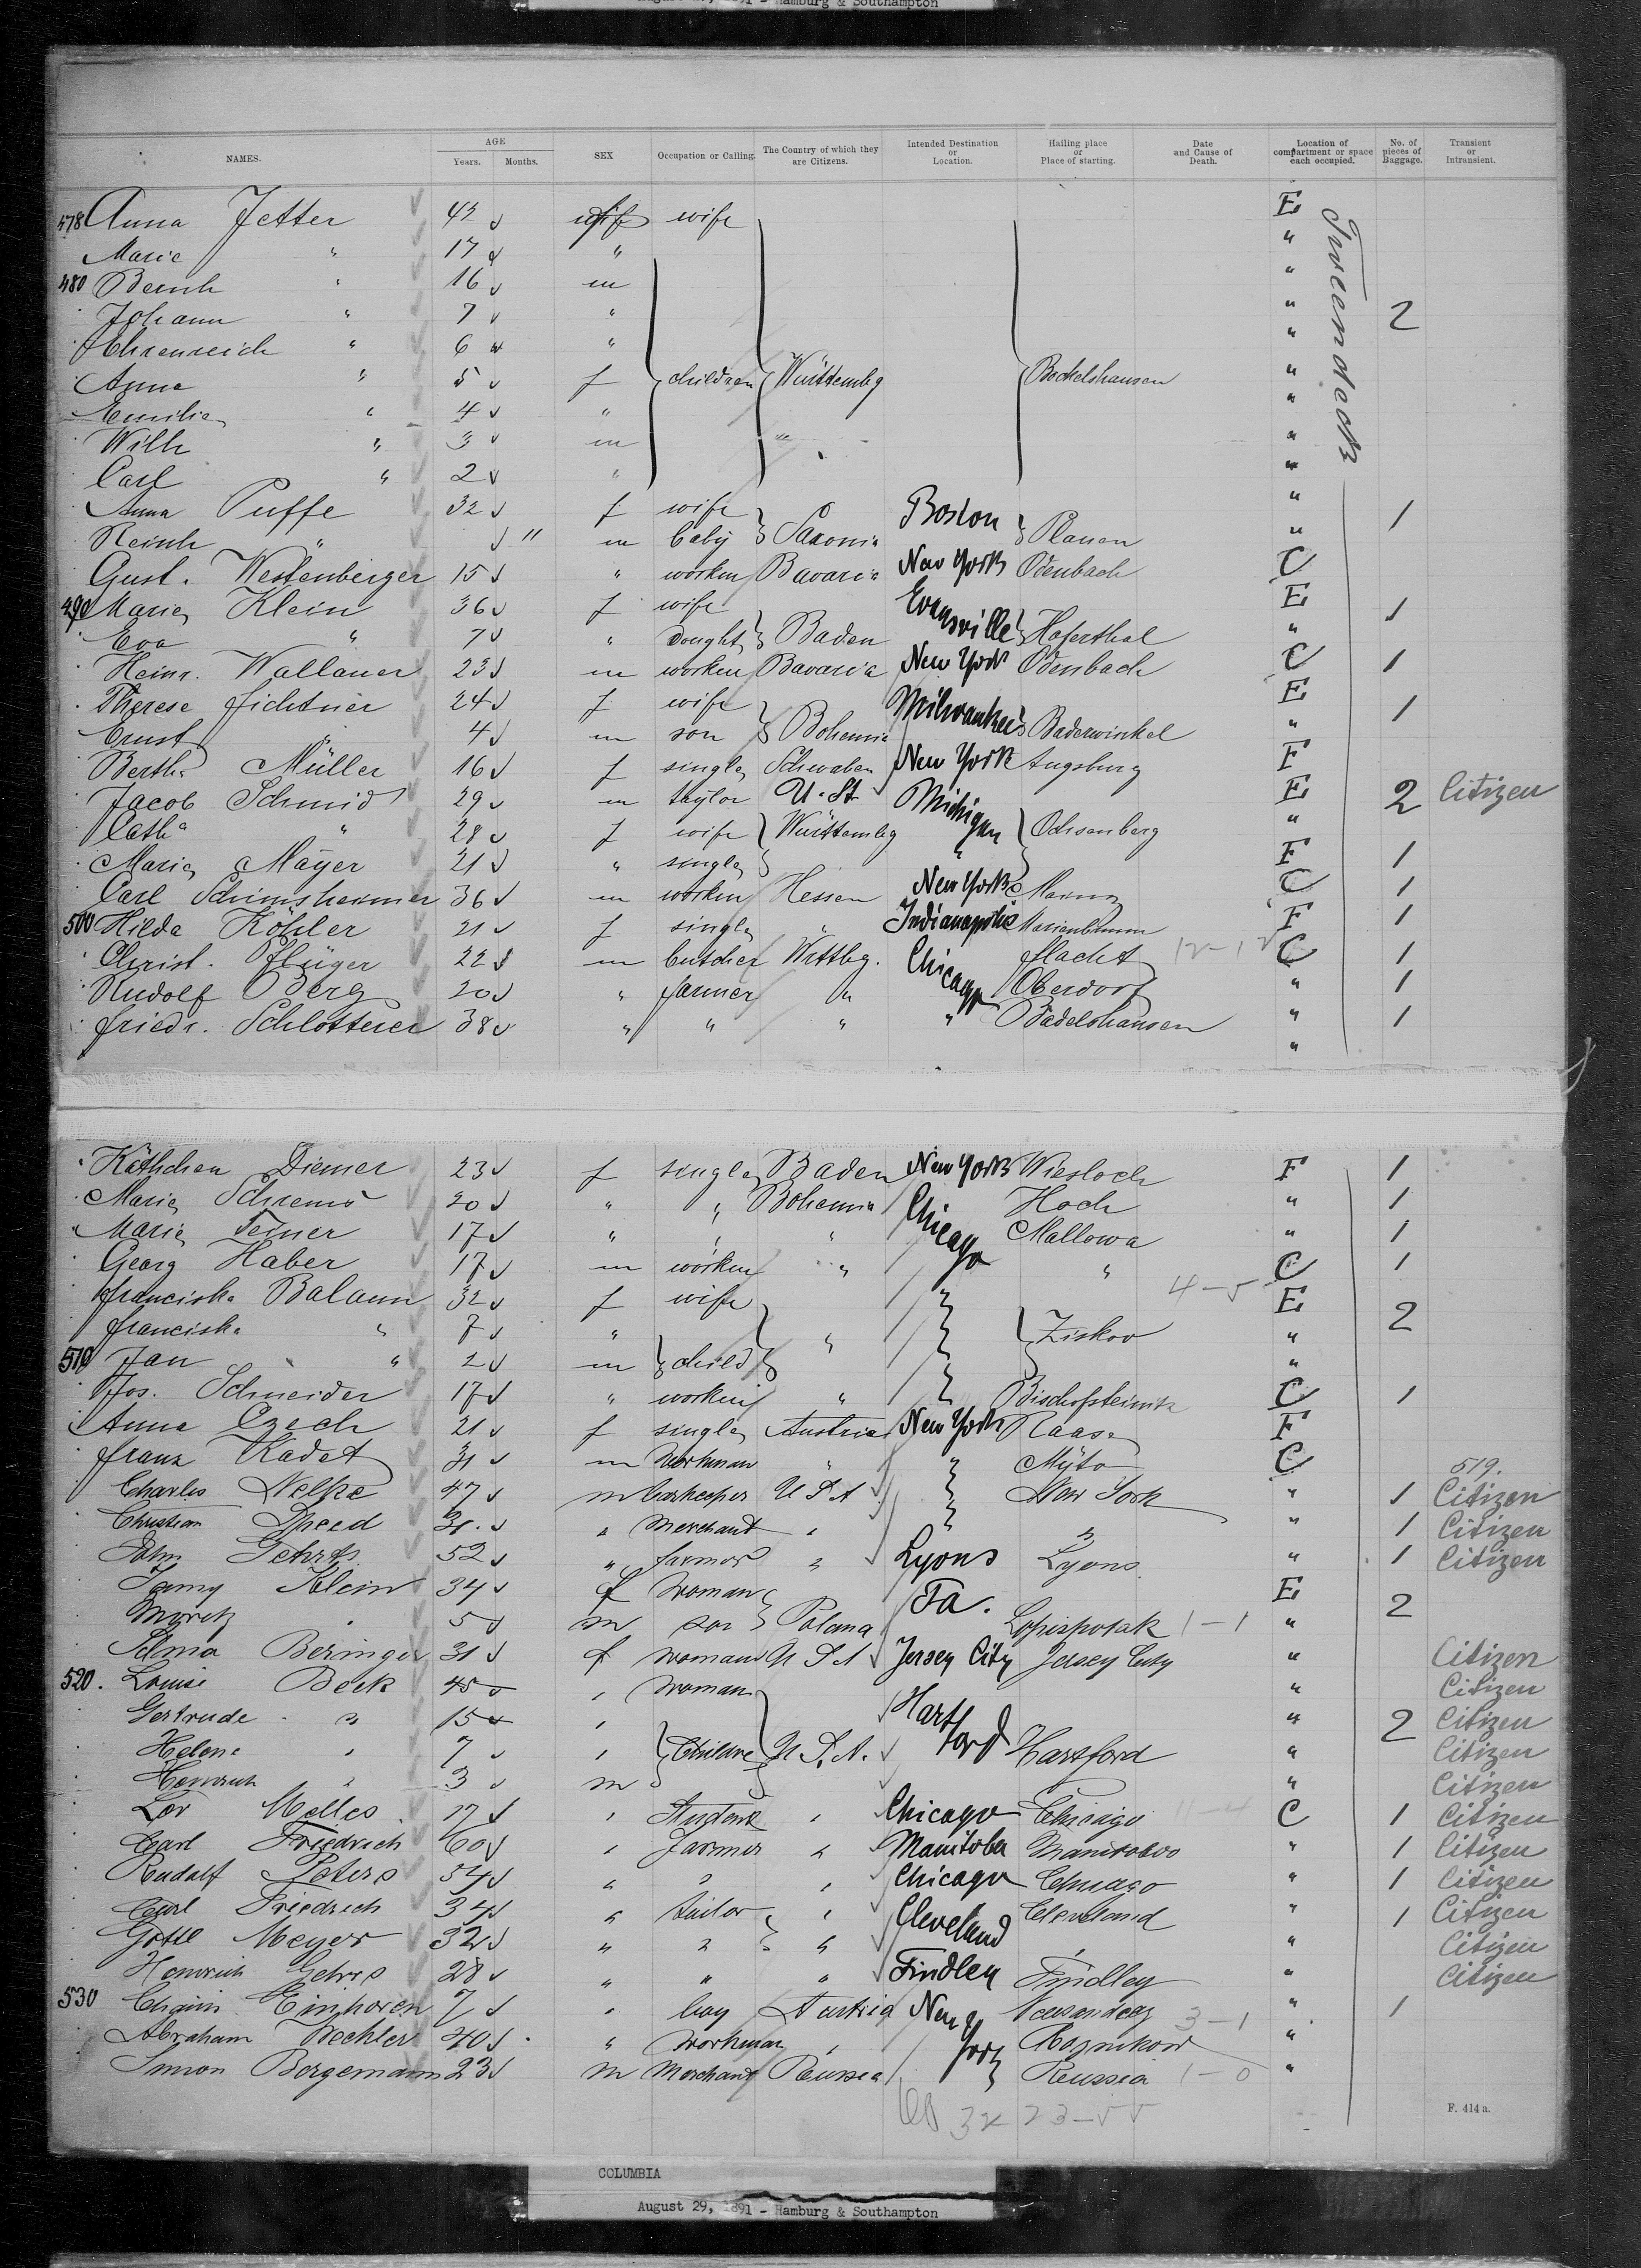 August 29, 1891 - Hamburg & Southampton
NAMES. AGE Years. Months. SEX Occupation or Calling. The Country of which they are Citizens. Intended Destination or Location. Hailing place or Place of starting. Date and Cause of Death. Location of compartment or space each occupied. No. of pieces of Baggage. Transient or Intransient.
478 Anna Jetter 42 f wife E Tweendeck
Marie " 17 " "
480 Bernh " 16 m "
Johann " 7 " " 2
Ehrenreich " 6 " "
Anna " 5 f children Württembg Bockelshausen "
Emilie " 4 " "
Wilh " 3 m "
Carl " 2 " "
Anna Puffe 32 f wife Boston " 1
Reinh " " m baby Saxonia Plauen "
Gust. Westenberger 15 " worker Bavaria New York Odenbach C
490 Marie Klein 36 f wife Evansville E 1
Eva " 7 " Dought Baden Haferthal "
Heinr. Wallauer 23 m worker Bavaria New York Odenbach C 1
Therese Fichtner 24 f wife Milwaukee E 1
Ernst " 4 m son Bohemia Baderwinkel "
Bertha Müller 16 f single Schwaben New York Augsburg F
Jacob Schmid 29 m taylor U. St. Michigan E 2 Citizen
Cath " 28 f wife Württembg Ochsenberg "
Marie Mayer 21 " single " F 1
Carl Schimsheimer 36 m worker Hessen New York Mainz C 1
500 Hilda Köhler 21 f single " Indianapolis Marienbaum F 1
Christ. Pflüger 22 m butcher Wrttbg. Chicago Flacht C 1
Rudolf Berg 20 " farmer " Oberdorf " 1
Friedr. Schlotterer 38 " " " " Badelshausen " 1
"
Käthchen Diemer 23 f single Baden New York Wiesloch F 1
Marie Schrems 20 " " Bohemia Chicago Hoch " 1
Marie Feiner 17 " " " Mallowa " 1
Georg Haber 17 m worker " " C 1
Franciska Balaun 32 f wife 4-5 E 2
Franciska " 7 " " Ziskov "
510 Jan " 2 m child "
Jos. Schneider 17 " worker " Bischofsteinitz C 1
Anna Czech 21 f single Austria New York Raase F
Franz Kadet 31 m workman " " Myto C 519.
Charles Nelke 47 m barkeeper U S A " New York " 1 Citizen
Christian Speed 31 " Merchant " " " " 1 Citizen
John Gehrts 52 " farmer " Lyons Lyons " 1 Citizen
Jenny Klein 34 f woman Ia. E 2
Moritz " 5 m son Poland 1-1 "
Selma Beringer 31 f woman U S A Jersey City Jersey City " Citizen
520. Louise Beck 45 " woman Hartford " Citizen
Gertrude " 15 " " 2 Citizen
Helene " 7 " Children U. S. A. Hartford " Citizen
Heinrich " 3 m " Citizen
Leo Melles 17 " Student " Chicago Chicago C 1 Citizen
Carl Friedrich 60 " Farmer " Manitoba Manitobo " 1 Citizen
Rudolf Peters 54 " " " Chicago Chicago " 1 Citizen
Carl Friedrich 34 " tailor " Cleveland Cleveland " 1 Citizen
Gottl Meyer 32 " " " " " Citizen
Heinrich Gehrs 28 " " " Findley Findley " Citizen
530 Chaim Einhoren 7 " boy Austria New York 3-1 " 1
Abraham Wechler 40 " workman " "
Simon Borgemann 23 m Merchant Russia Russia 1-0 "
F. 414 a.
COLUMBIA
August 29, 1891 - Hamburg & Southampton